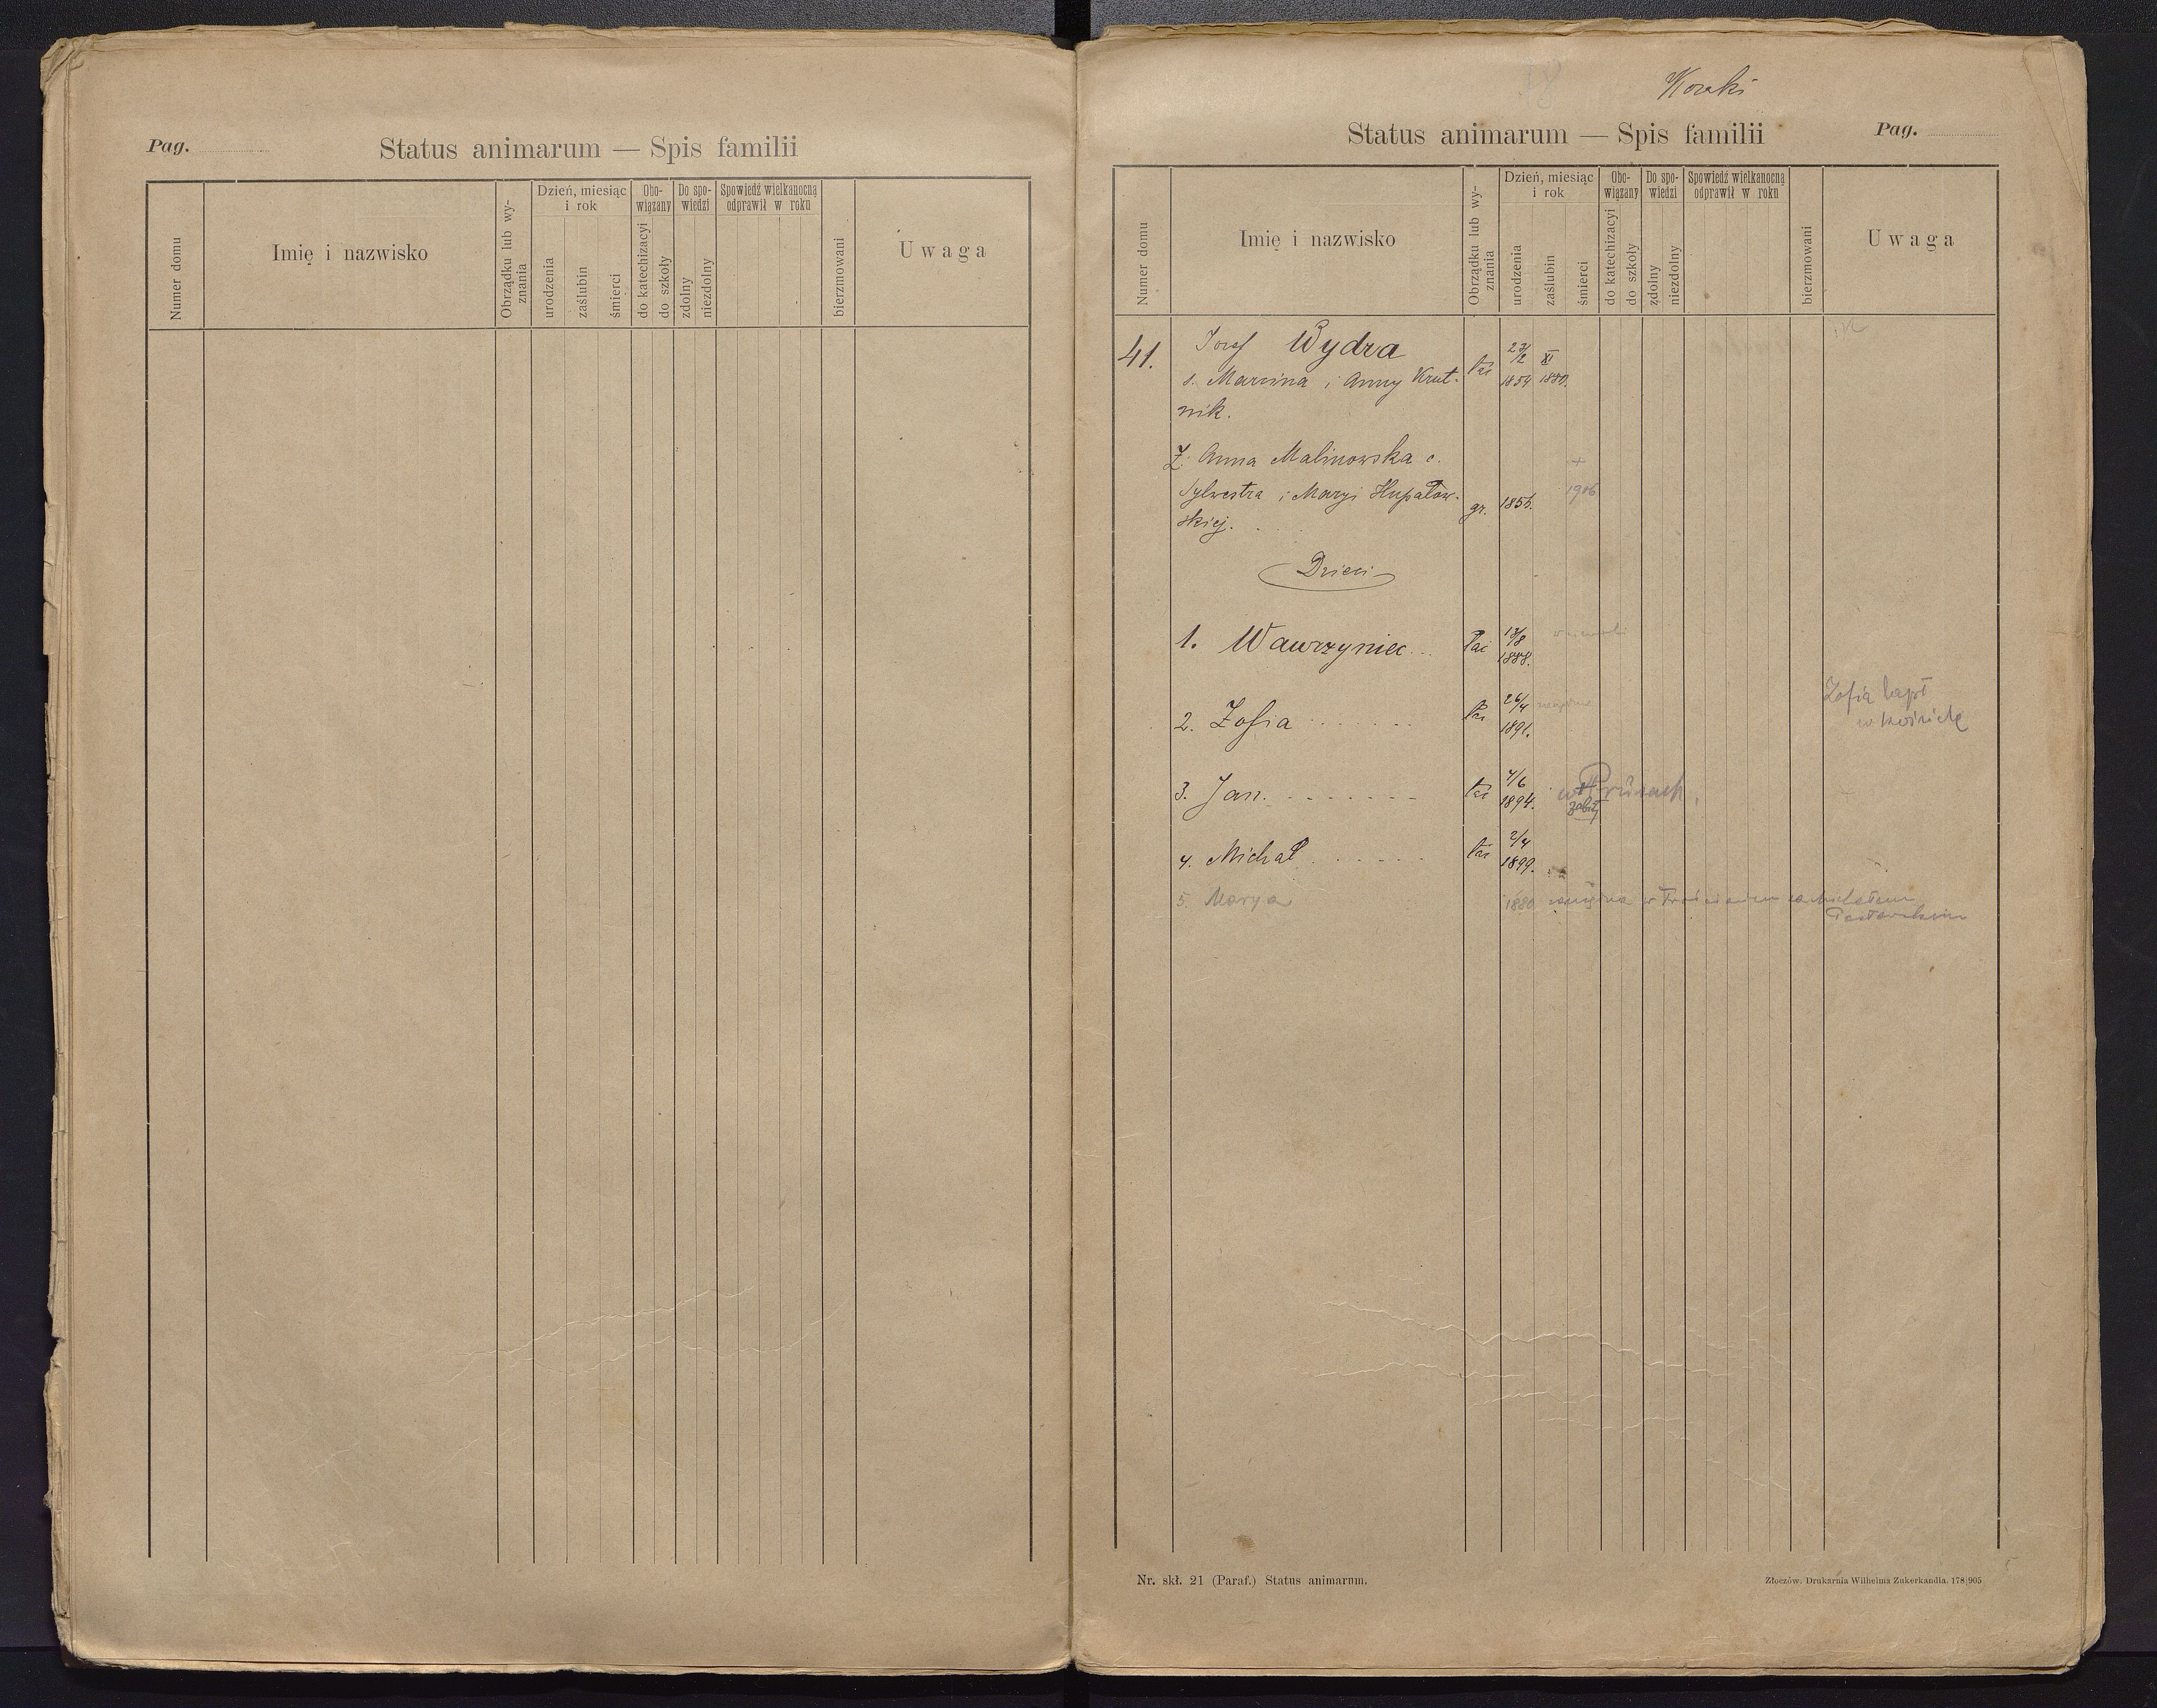 Pag.
Status animarum — Spis familii
Numer domu
Imię i nazwisko
Obrządku lub wy-
znania
Dzień, miesiąc
i rok
urodzenia
zaślubin
śmierci
Obo-
wiązany
do katechizacyi
do szkoły
Do spo-
wiedzi
zdolny
niezdolny
Spowiedź wielkanocną
odprawił w roku
bierzmowani
Uwaga
18
Status animarum — Spis familii
Pag.
Numer domu
Imię i nazwisko
Obrządku lub wy-
znania
Dzień, miesiąc
i rok
urodzenia
zaślubin
śmierci
Obo-
wiązany
do katechizacyi
do szkoły
Do spo-
wiedzi
zdolny
niezdolny
Spowiedź wielkanocną
odprawił w roku
bierzmowani
Uwaga
41. Józef Wydra 23/2 XI
s. Marcina i Anny Krut- łać 1854 1880.
nik.
Ż. Anna Malinowska c. +
Sylwestra i Maryi Hupałow- gr. 1856. 1906
skiej.
Dzieci
1. Wawrzyniec łać 13/8
1888.
2. Zofia łać 26/4
1891.
Zofia
w
3. Jan. łać 4/6
1894. w Prusach
zabity
4. Michał łać 2/4
1899.
5. Marya 1880 zamężna w
Nr. skł. 21 (Paraf.) Status animarum.
Złoczów, Drukarnia Wilhelma Zukerkandla. 178|905